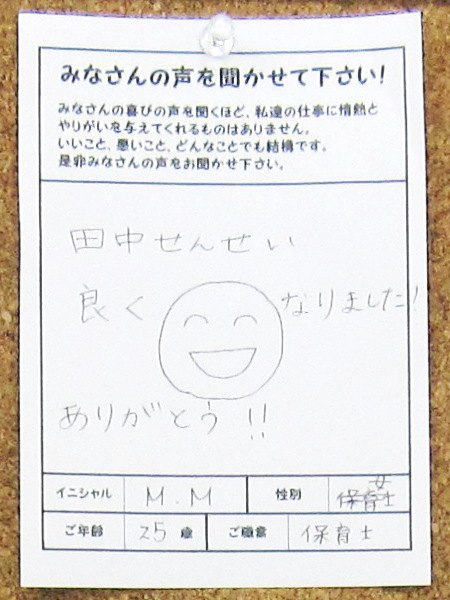 みなさんの声を聞かせて下さい!
みなさんの喜びの声を聞くほど、私達の仕事に情熱と
やりがいを与えてくれるものはありません。
いいこと、悪いこと、どんなことでも結構です。
是非みなさんの声をお聞かせ下さい。
田中せんせい
良く なりました!
ありがとう!!
イニシャル M.M 性別 保育士 女
ご年齢 25歳 ご職業 保育士